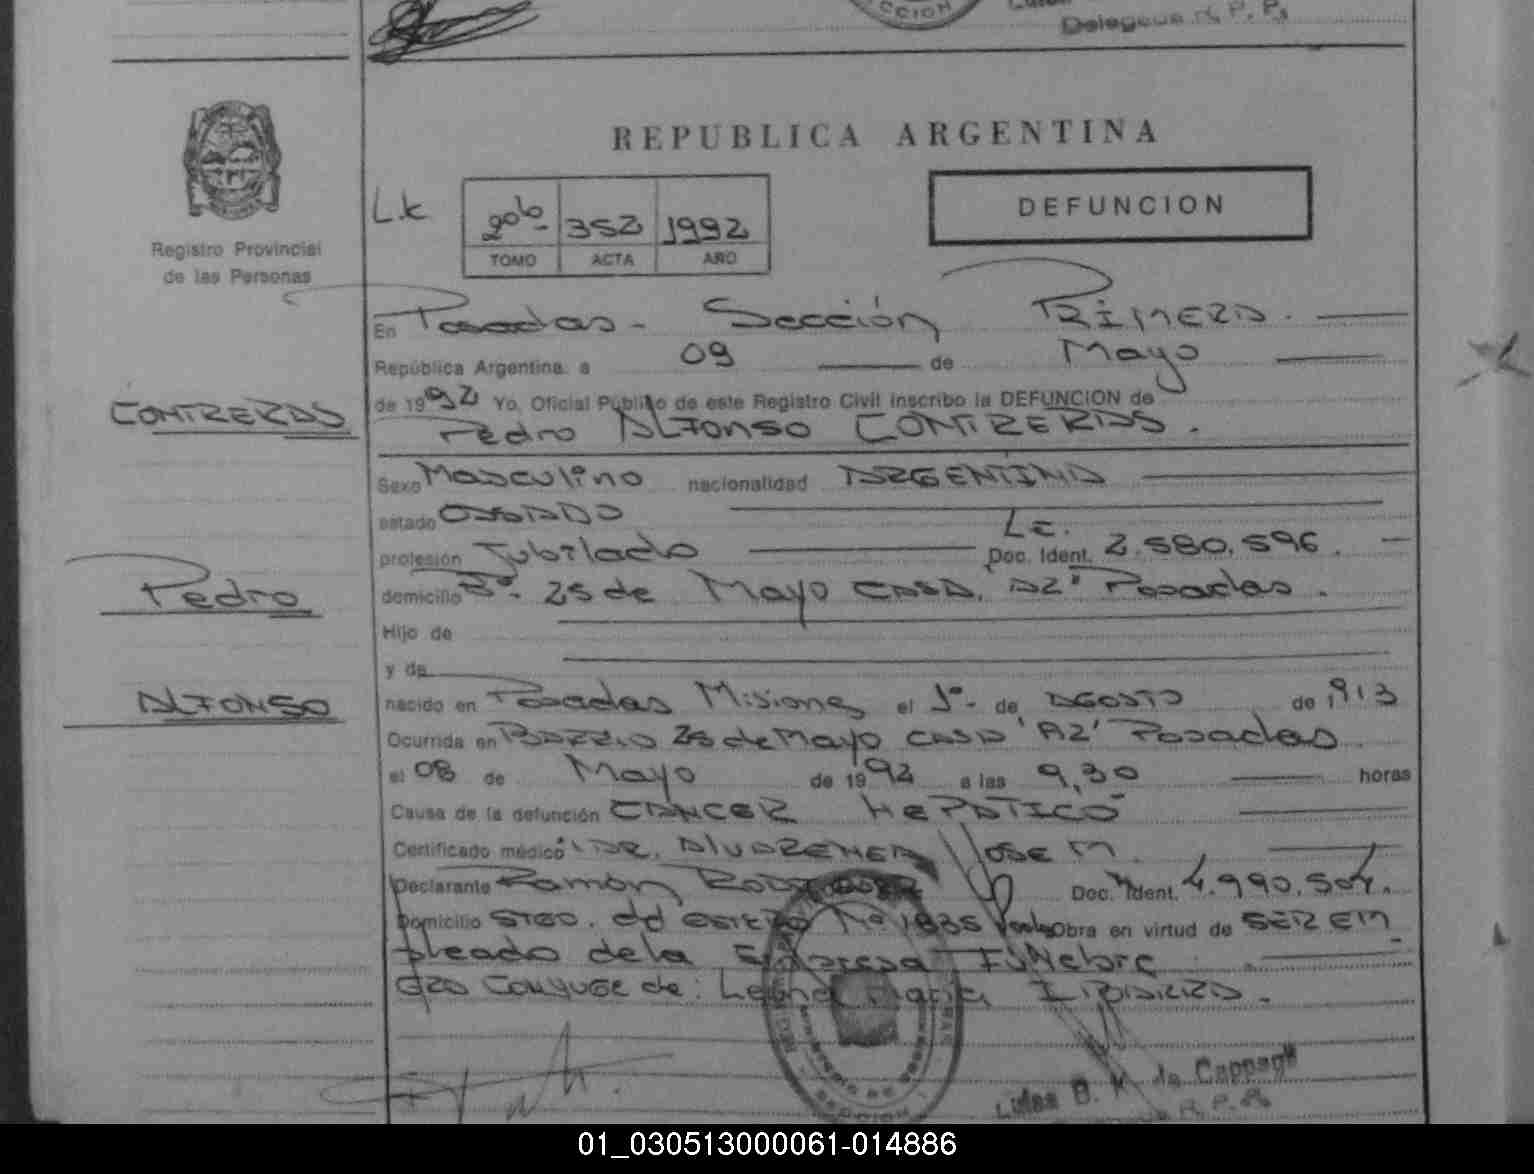 CCION
Delegada R. P. P.
REPUBLICA ARGENTINA
L.k
2º b - 352 1992
TOMO ACTA AÑO
DEFUNCION
Registro Provincial
de las Personas
En Posadas - Sección Primera.
República Argentina. a 09 de Mayo
de 1992 Yo, Oficial Público de este Registro Civil inscribo la DEFUNCION de
CONTRERAS
Pedro Alfonso CONTRERAS.
Sexo Masculino nacionalidad ARGENTINA
estado CASADO
profesión Jubilado L.E. Doc. Ident. 2.580.596.
Pedro
domicilio Bº. 25 de Mayo CASA. "A2" Posadas.
Hijo de
y de
ALFONSO
nacido en Posadas Misiones el 1º- de AGOSTO de 1913
Ocurrida en BARRIO 25 de Mayo CASA 'A2' Posadas
el 08 de Mayo de 1992 a las 9,30 horas
Causa de la defunción CANCER HEPATICO
Certificado médico DR. JOSE M.
Declarante Ramón Doc. Ident. 4.990.504.
Domicilio STGO. del ESTERO Nº 1835 Obra en virtud de SER EM
pleado de la Empresa FUNebre
ERA CONYUGE de: Maria
SECCION
Lidea B. K. de Cappag
R. P. P.
01_030513000061-014886